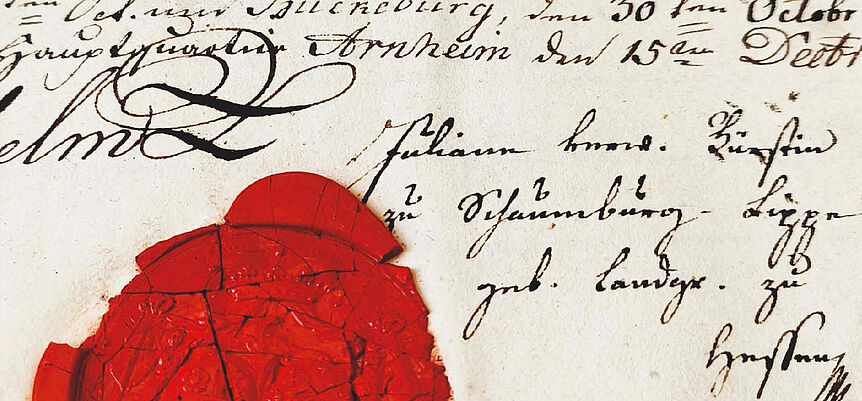 ten Oct. und Bückeburg, den 30ten Octobr
Hauptquartier Arnheim den 15ten Decbr
elm
Juliane verw. Fürstin
zu Schaumburg-Lippe
geb. Landgr. zu
Hessen